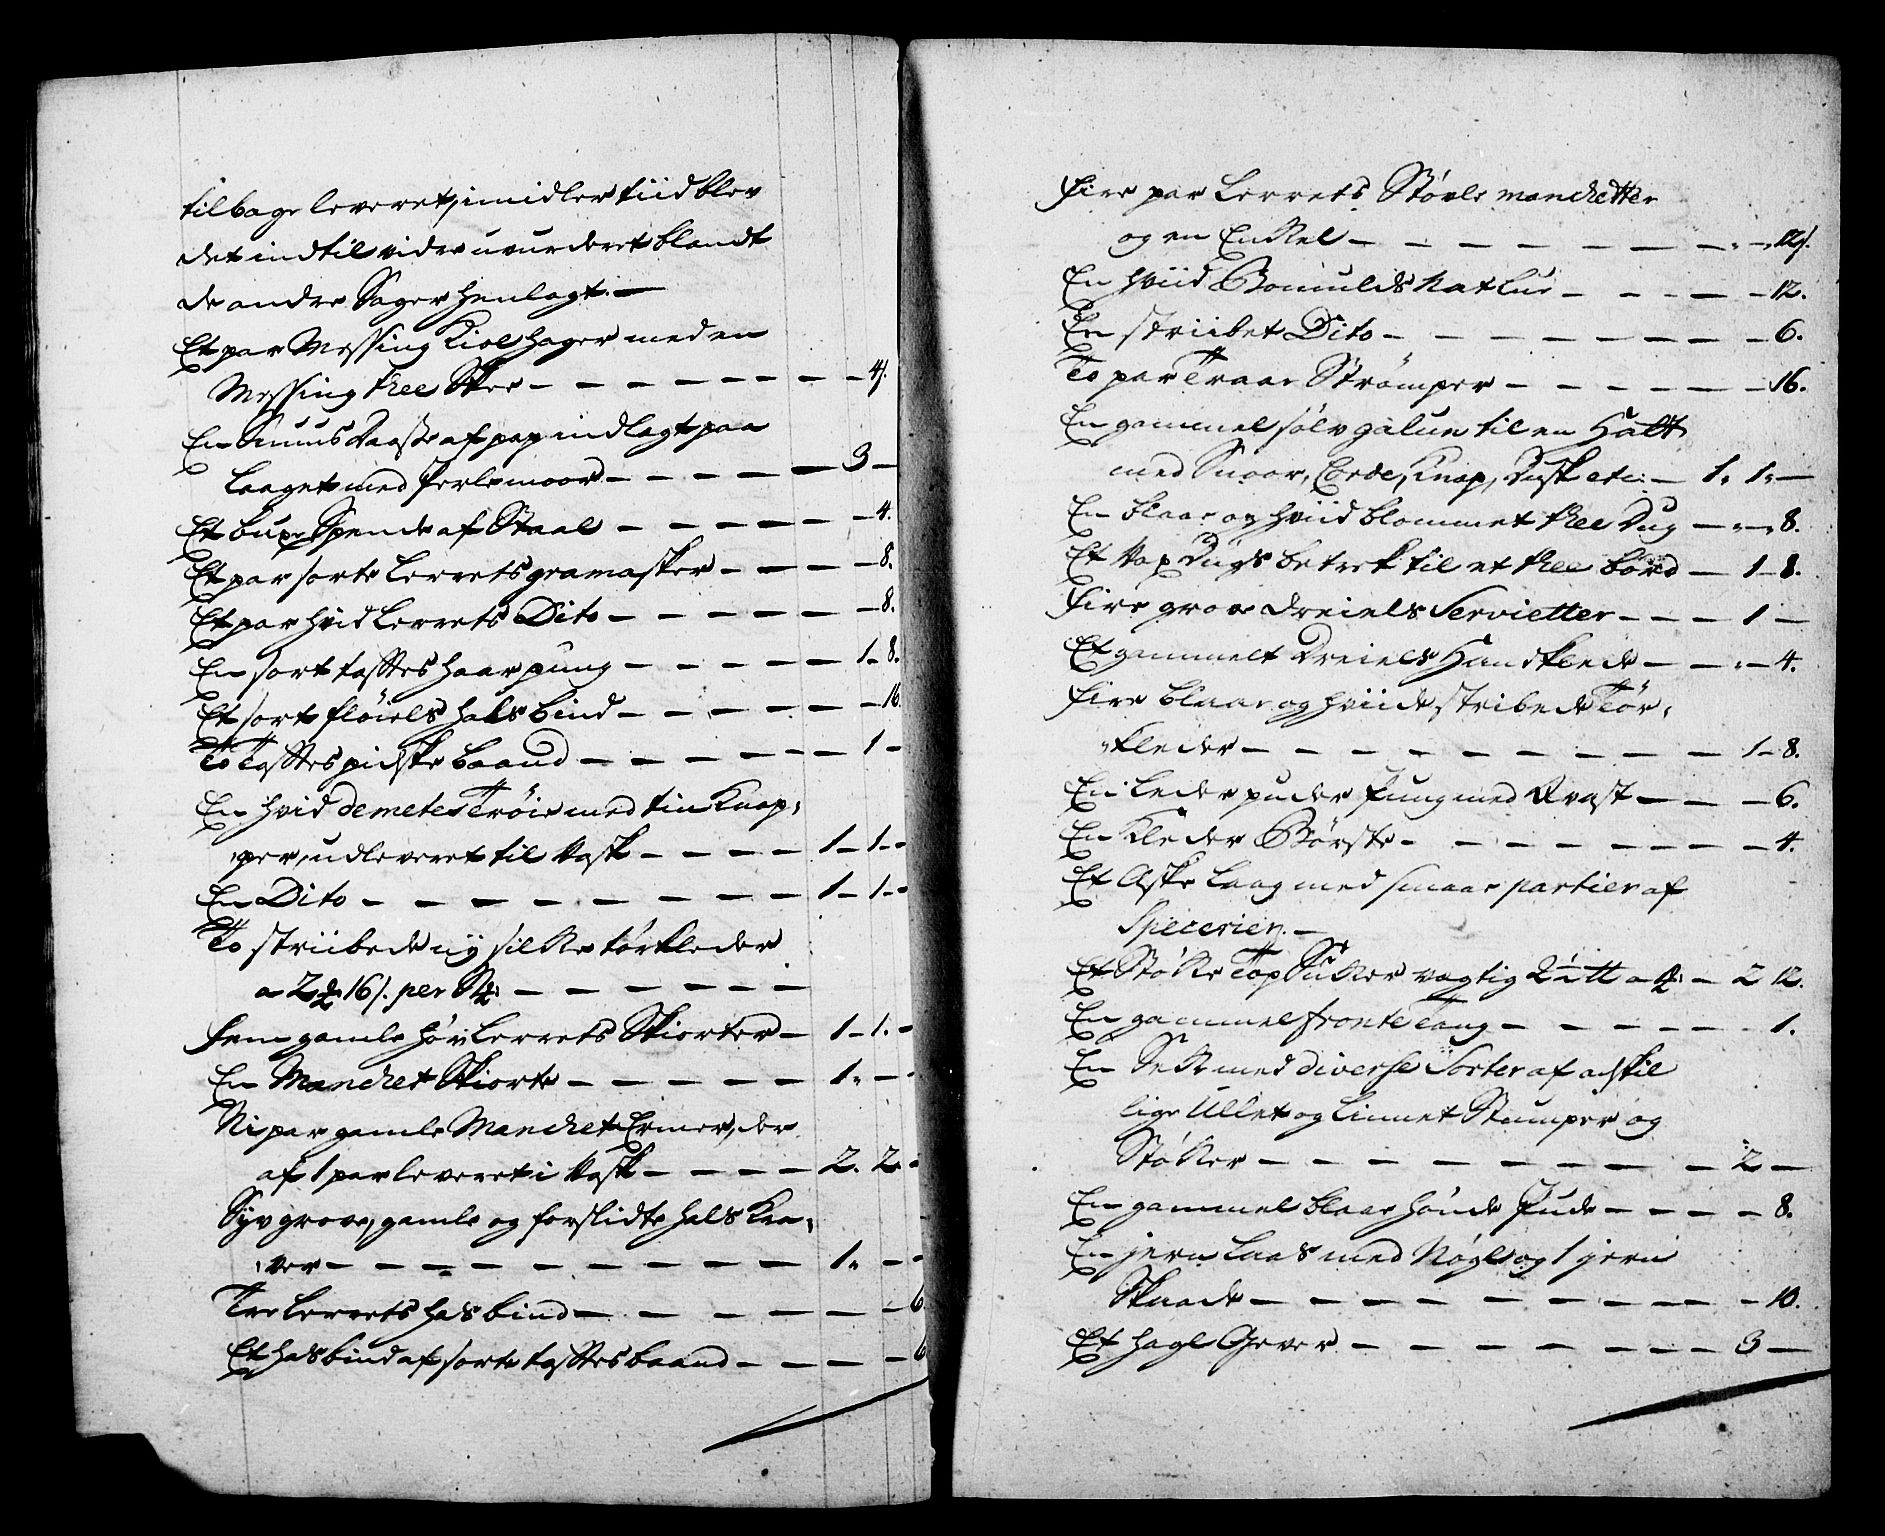 tilbage leveret, imidlertiid blev
det indtil vidre uvurderet blandt
de andre Sager henlagt. —
Et par Messing Kiol hager med en
Messing thee Skee — — — — — — — — 4 s.
En Snuus Daasse af pap indlagt paa
Laaget med Perlemoor — — — — — 3 —
Et buxe Spende af Staal — — — — — — 4.
Et par sorte Lerrets gramasker — — — — 8.
Et par hvid Lerrets Dito — — — — — — 8.
En sort taftes haar pung — — — — — 1 - 8.
Et sort fløiels hals bind — — — — — — 16.
To Taftes pidske baand — — — — — — 1 —
En hvid demetes Trøie med tin Knap,
per, udleveret til Vask — — — — 1 - 1 -
En Dito — — — — — — — — — 1 - 1 -
To striibede nÿ silke tørkleder
a 2 16 s. per St: — — — — — — —
Fem gamle hør Lerrets Skiorter — 1 - 1. -
En Manchet Skiorte — — — — — 1 " — -
Ni par gamle Manchet Ermer, der
af 1 par leveret i Vask — — — — 2. 2. -
Syv grove, gamle og forslidte hals Kra,
ver — — — — — — — — — — 1 " — -
Tre Lerrets hals bind — — — — — — 6.
Et hals bind af sorte taftes baand — — — — 6
Fire par Lerrets Støvle manchetter
og en Enkel — — — — — — — " — " 12 s.
En hviid Bomulds Nat Lue — — — — — 12.
En striibet Dito — — — — — — — — 6.
To par Traae Strømper — — — — — — 16.
En gammel sølv galun til en Hatt
med Snoor, Corde, Knap, Dusk etc: — 1. 1. —
En blaae og hviid blommet thee Dug — " — " 8.
Et Vox Dugs betrek til et thee bord — 1 - 8.
Fire grove Dreiels Servietter — — — 1 —
Et gammelt Dreiels Handklede — — " — 4.
Fire blaae og hviide stribede Tør,
kleder — — — — — — — — — 1 - 8.
En Leder puder Pung med Qvast — — — 6.
En Kleder Børste — — — — — — — — 4.
Et Aske Laag med smaae partier af
Specerier. —
Et Støkke Top Sukker vegtig — 2 12.
En gammel — — — — — 1.
En Sek med diverse Sorter af adskil
lige Ullet og Linnet Stumper og
Støkker — — — — — — — — 2 —
En gammel blaae hoved Pude — — — — 8.
En jern Laas med Nøgle og 1 jern
— — — — — — — — — 10.
Et hagl Gever — — — — — — — 3 —